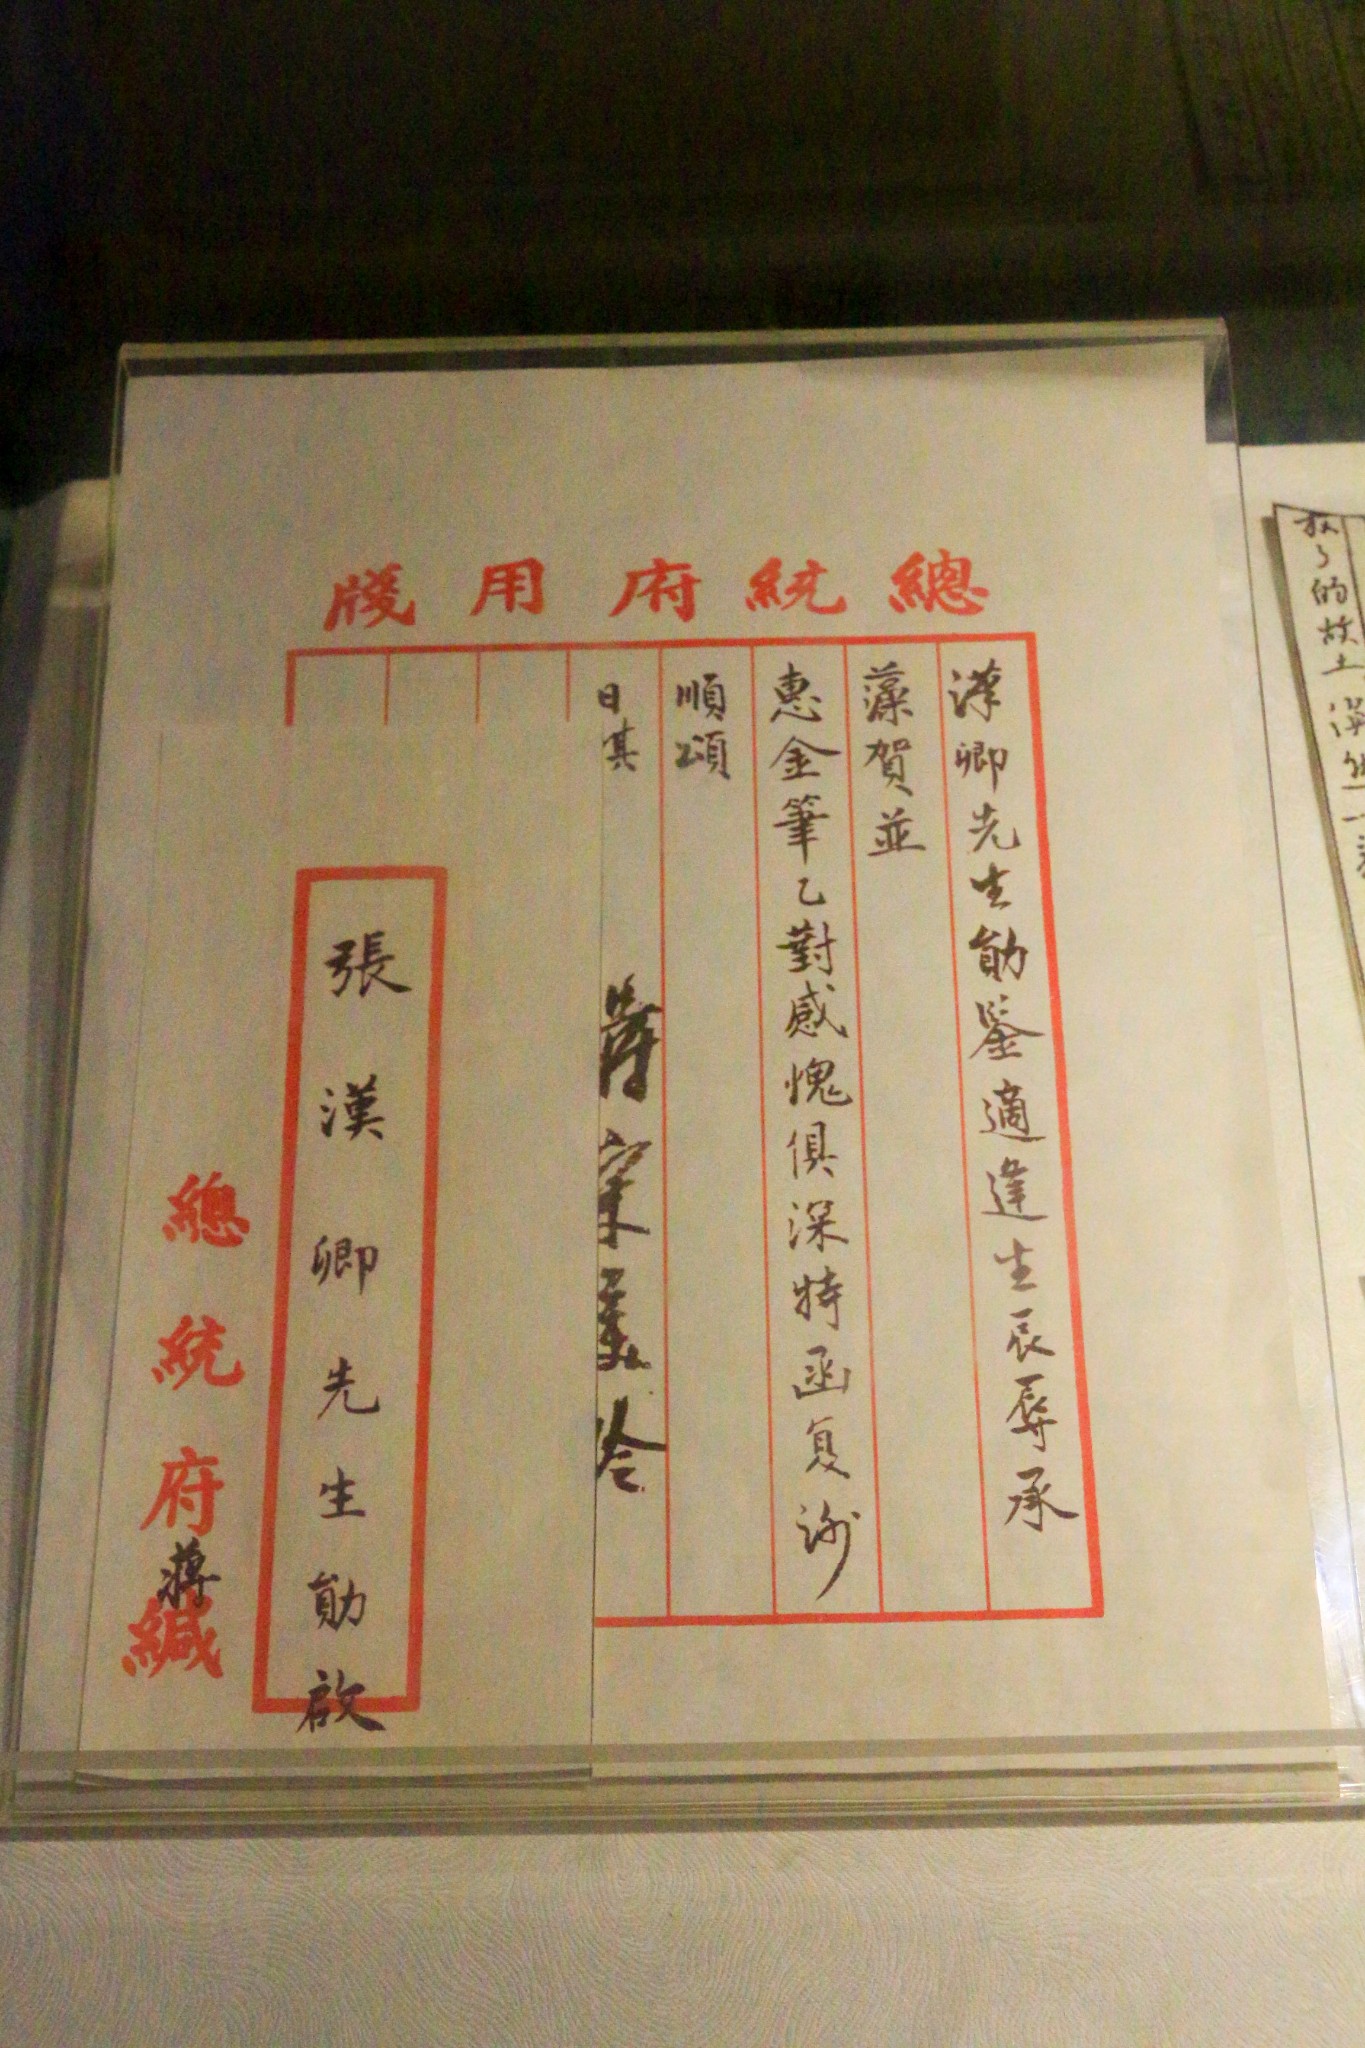 總統府用牋
漢卿先生勛鑒適逢生辰辱承
藻賀並
惠金筆乙對感愧俱深特函复谢
順頌
日祺
蔣宋美齡
張漢卿先生勛啟
總統府蔣緘
的故土